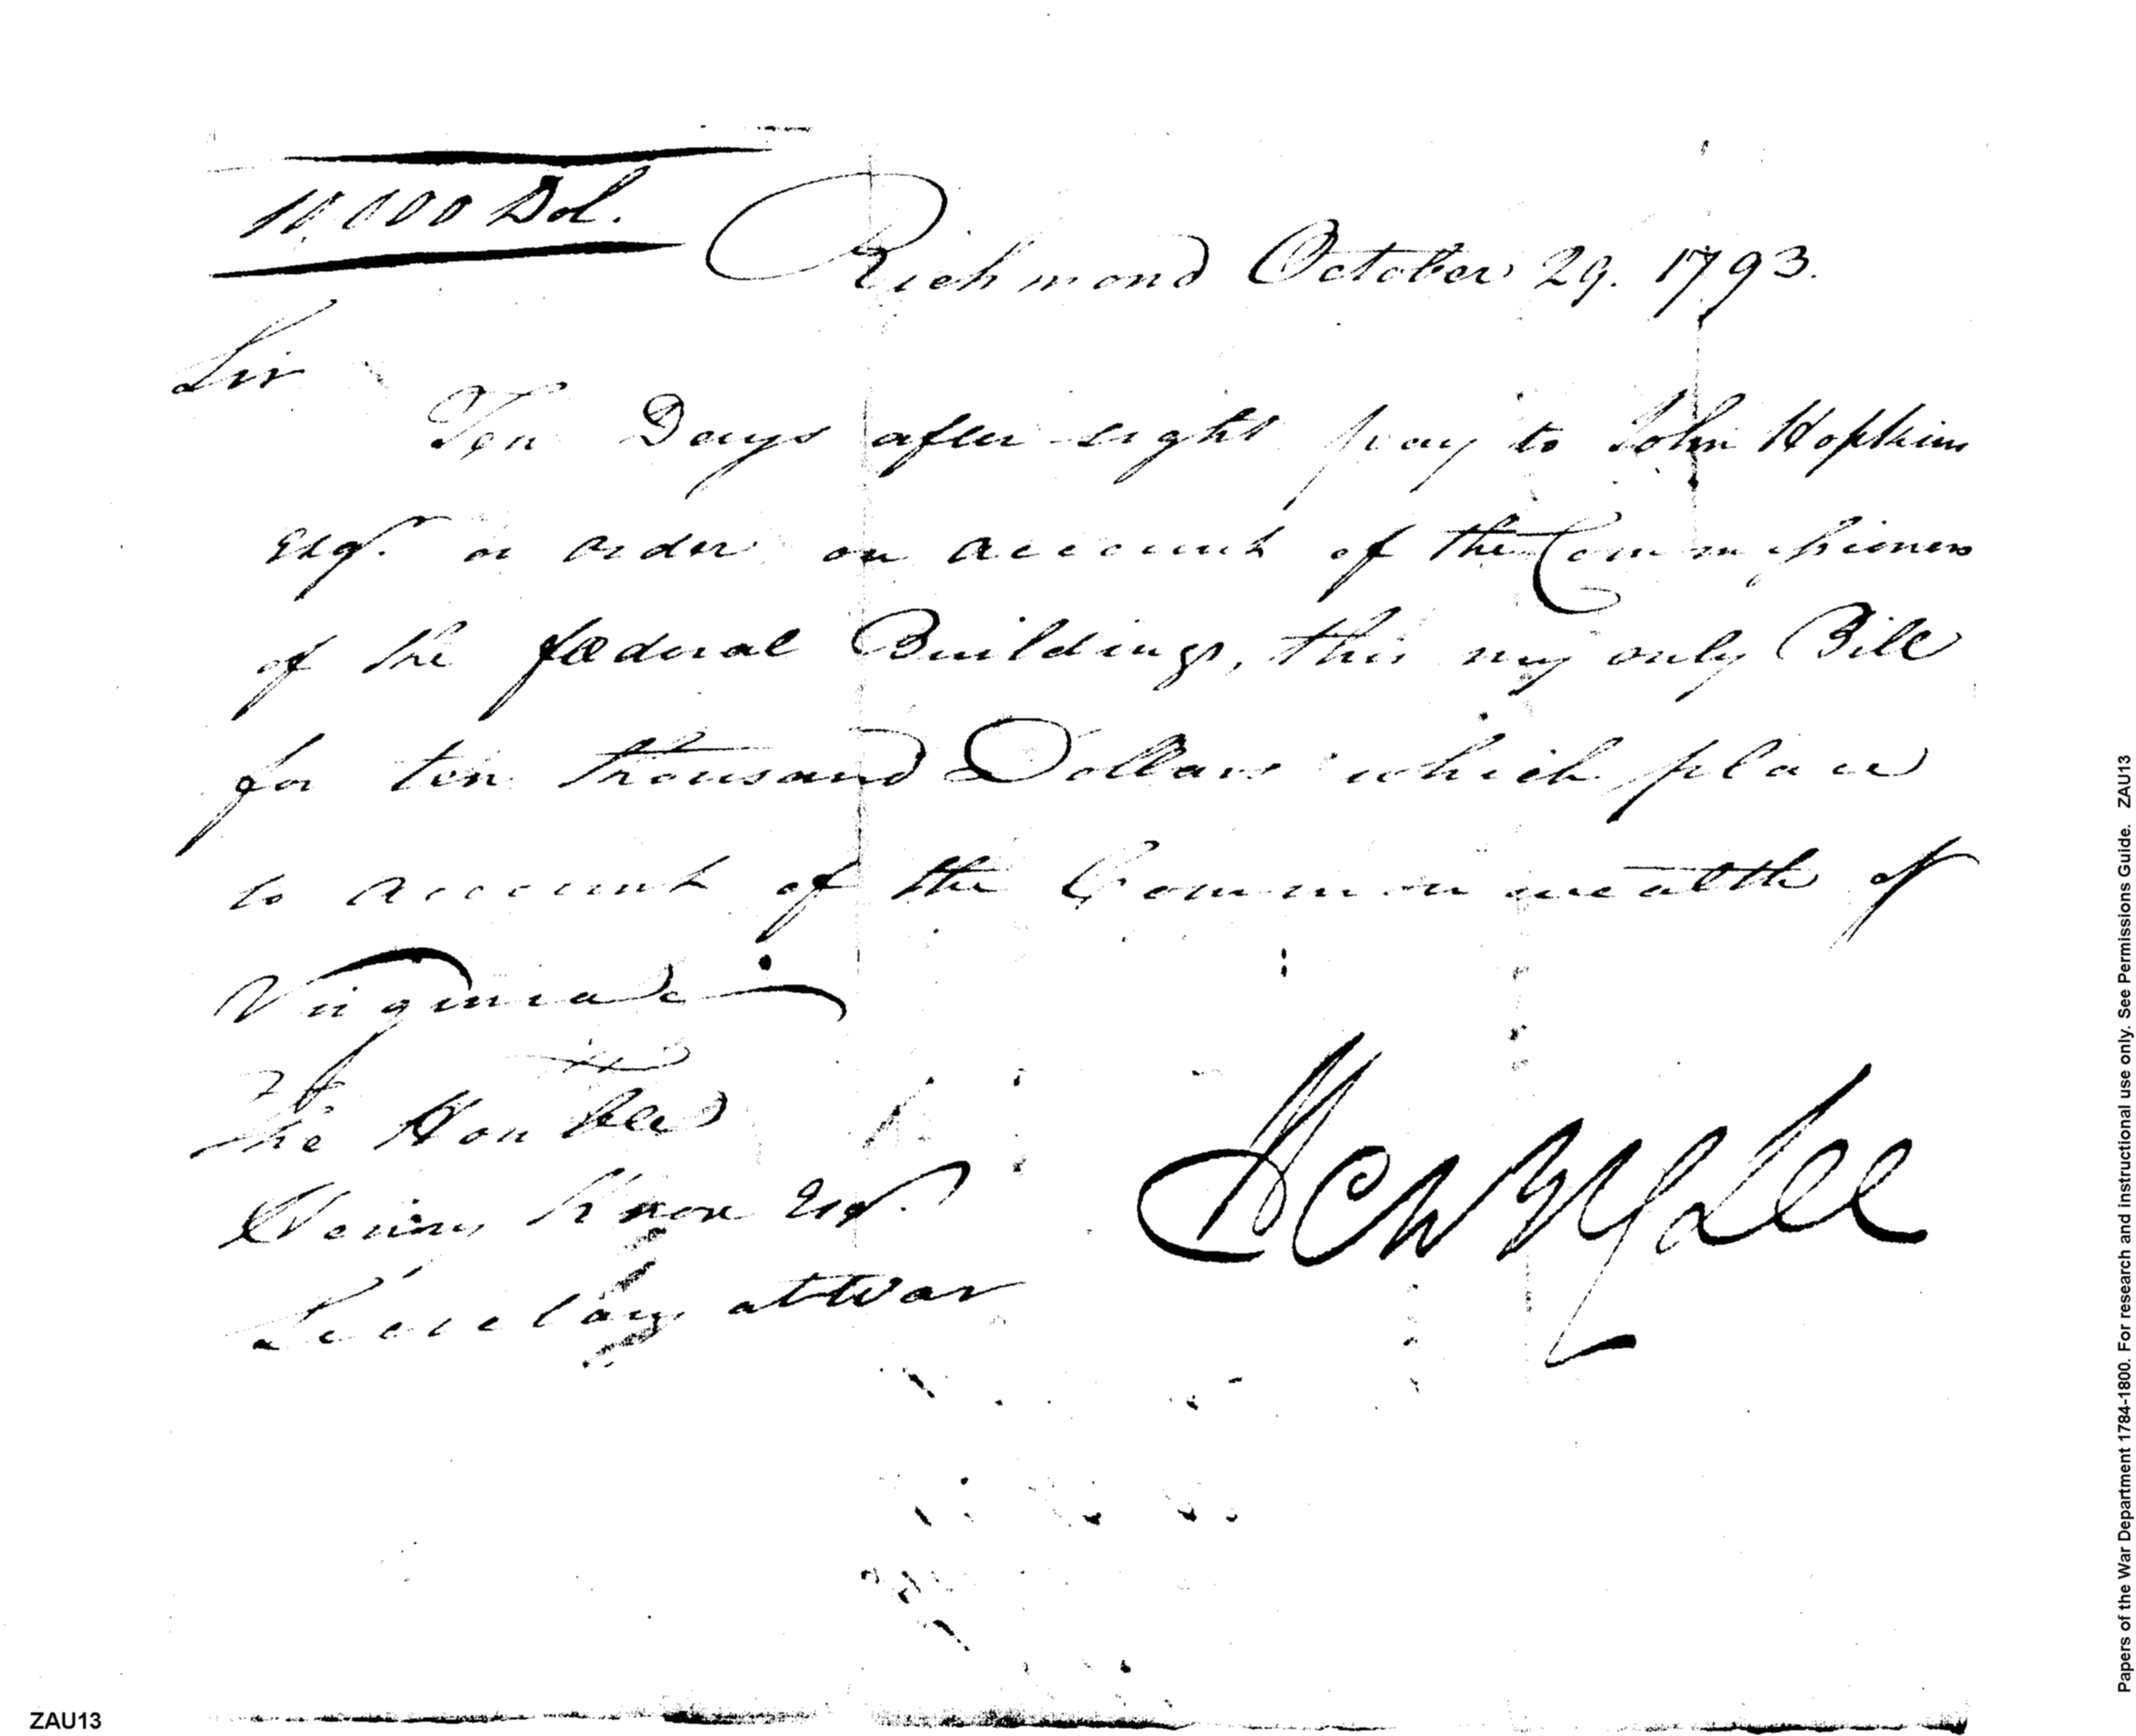 10,000 Dol.
Richmond October 29. 1793.
Sir
Ten Days after sight pay to John Hopkins
Esqr. or order on account of the Commissioners
of the fœderal Buildings, this my only Bill
for ten thousand Dollars which place
to account of the Commonwealth of
Virginia
The Honble
Henry Knox Esqr.
Secretary at War
Henry Lee
ZAU13
Papers of the War Department 1784-1800. For research and instructional use only. See Permissions Guide. ZAU13